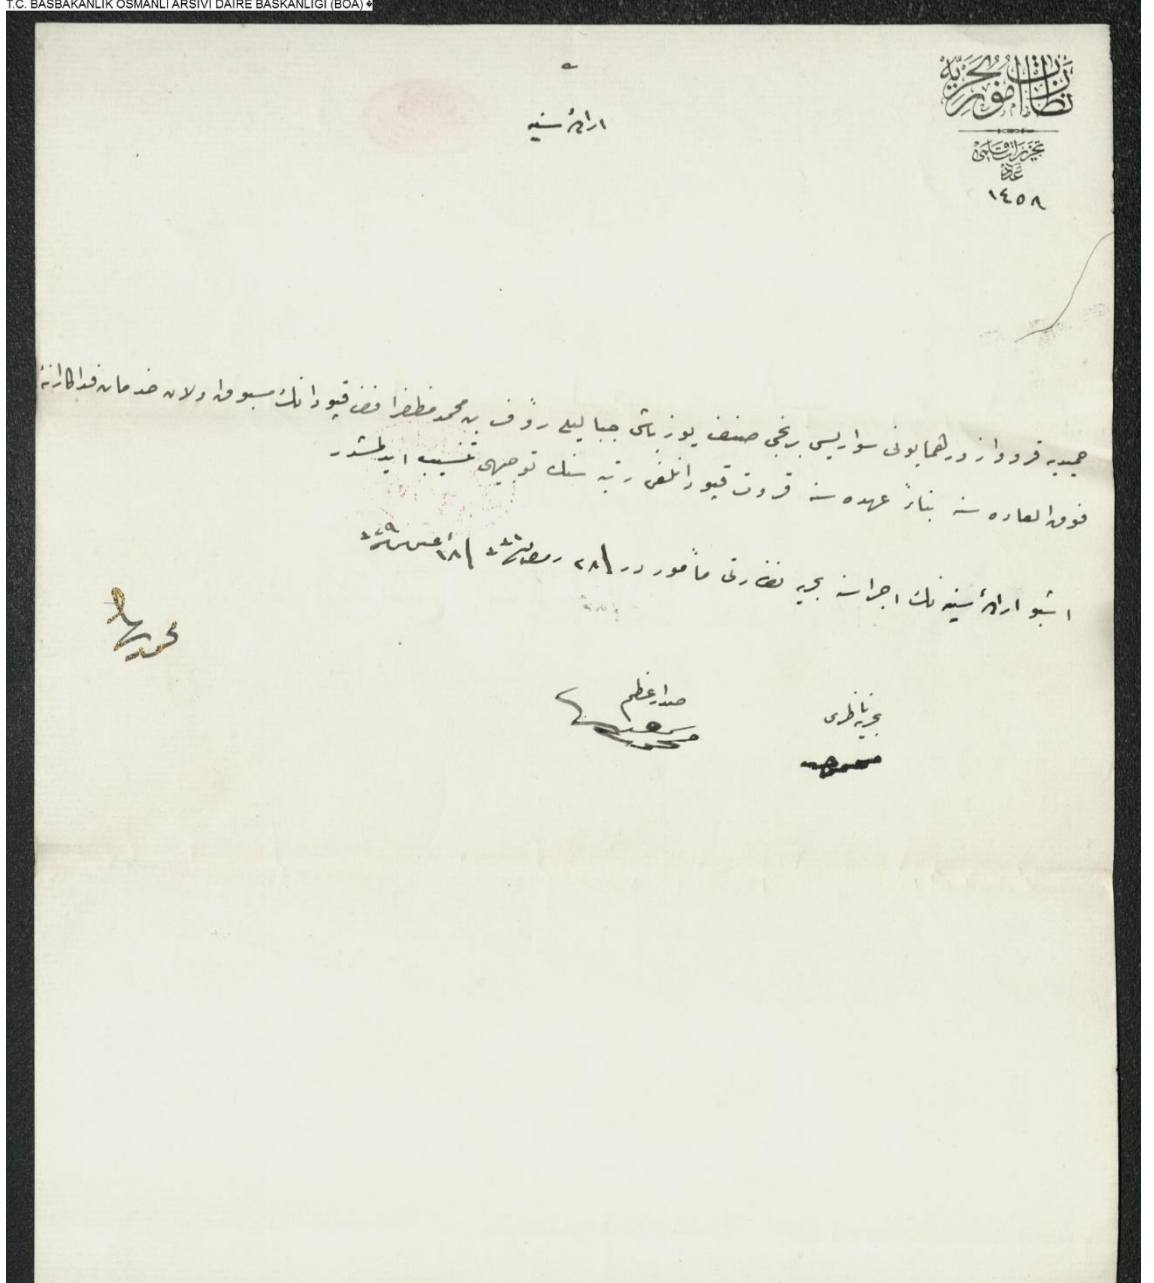 T.C. BASBAKANLIK OSMANLI ARSIVI DAIRE BASKANLIGI (BOA) �
نظارت امور بحريه
تحريرات قلمى
عدد
١٤٥٨
ارادۀ سنيه
حميديه قرووازور همايونى سواريسى برنجى صنف يوزباشى جبالیلى رؤف بن محمد مظفر افندى قپودانك مسبوق اولان خدمات فداكارانۀ
فوق العاده سنه بناءً عهده سنه قرووت قپودانلغى رتبه سنك توجيهى تنسيب ايدلمشدر
اشبو ارادۀ سنيه نك اجراسنه بحريه نظارتى مأموردر ٢٨ رمضان ١٨ اغستوس
محمد رشاد
صدراعظم
محمد سعيد
بحريه ناظرى
محمود